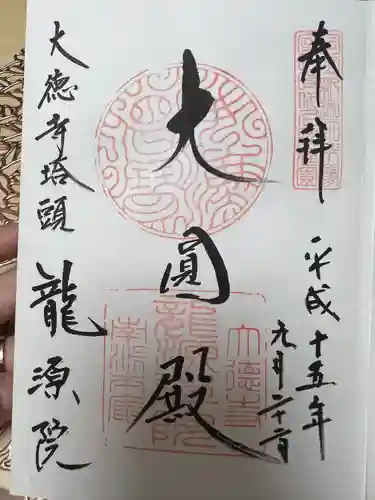 奉拝
平成十五年
九月二十二日
大圓殿
大德寺塔頭
龍源院